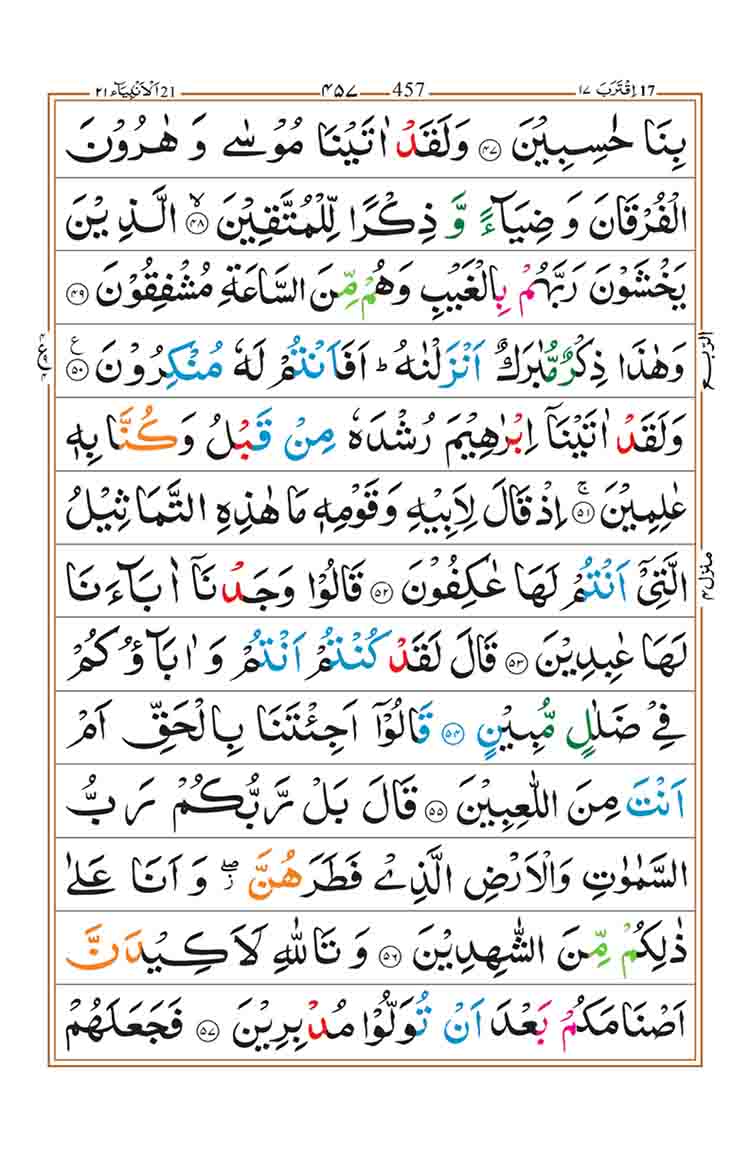 اَلْاَنْبِيَآء ٢١ 21 ۴۵۷ 457 اِقْتَرَبَ ١٧ 17
بِنَا حٰسِبِيْنَ ﴿۴۷﴾ وَلَقَدْ اٰتَيْنَا مُوْسٰى وَ هٰرُوْنَ
الْفُرْقَانَ وَ ضِيَآءً وَّ ذِكْرًا لِّلْمُتَّقِيْنَ ﴿ۙ۴۸﴾ الَّذِيْنَ
يَخْشَوْنَ رَبَّهُمْ بِالْغَيْبِ وَهُمْ مِّنَ السَّاعَةِ مُشْفِقُوْنَ ﴿۴۹﴾
وَهٰذَا ذِكْرٌ مُّبٰرَكٌ اَنْزَلْنٰهُ ؕ اَفَاَنْتُمْ لَهٗ مُنْكِرُوْنَ ﴿۵۰﴾ ع
الربع
وَلَقَدْ اٰتَيْنَاۤ اِبْرٰهِيْمَ رُشْدَهٗ مِنْ قَبْلُ وَ كُنَّا بِهٖ
عٰلِمِيْنَ ﴿ۚ۵۱﴾ اِذْ قَالَ لِاَبِيْهِ وَ قَوْمِهٖ مَا هٰذِهِ التَّمَاثِيْلُ
الَّتِيْۤ اَنْتُمْ لَهَا عٰكِفُوْنَ ﴿۵۲﴾ قَالُوْا وَجَدْنَاۤ اٰبَآءَنَا
منزل ۴
لَهَا عٰبِدِيْنَ ﴿۵۳﴾ قَالَ لَقَدْ كُنْتُمْ اَنْتُمْ وَ اٰبَآؤُكُمْ
فِيْ ضَلٰلٍ مُّبِيْنٍ ﴿۵۴﴾ قَالُوْۤا اَجِئْتَنَا بِالْحَقِّ اَمْ
اَنْتَ مِنَ اللّٰعِبِيْنَ ﴿۵۵﴾ قَالَ بَلْ رَّبُّكُمْ رَبُّ
السَّمٰوٰتِ وَالْاَرْضِ الَّذِيْ فَطَرَهُنَّ ۖ٘ وَ اَنَا عَلٰى
ذٰلِكُمْ مِّنَ الشّٰهِدِيْنَ ﴿۵۶﴾ وَ تَاللّٰهِ لَاَكِيْدَنَّ
اَصْنَامَكُمْ بَعْدَ اَنْ تُوَلُّوْا مُدْبِرِيْنَ ﴿۵۷﴾ فَجَعَلَهُمْ